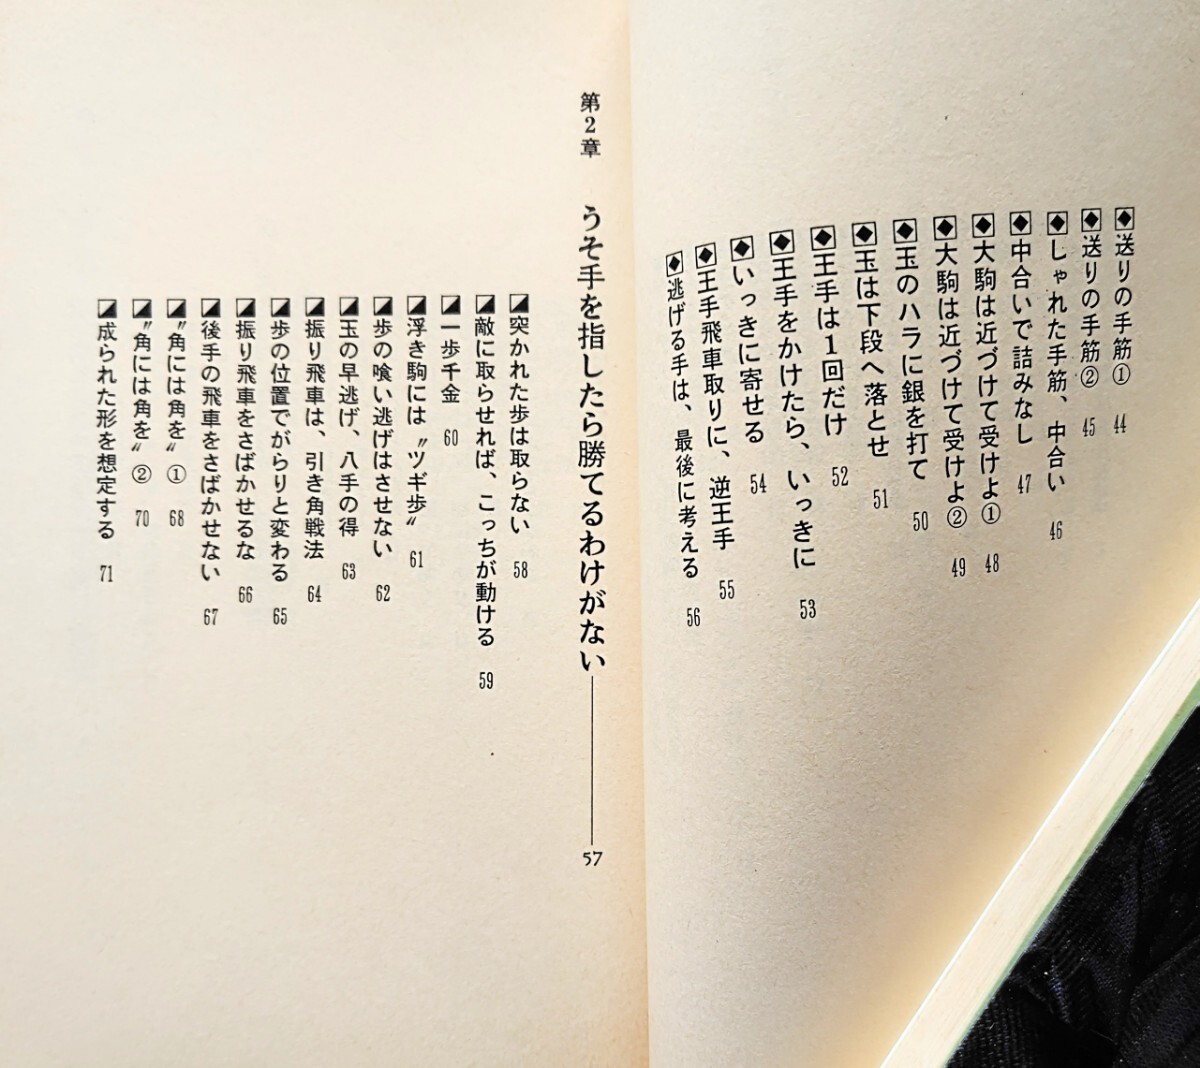 送りの手筋① 44
送りの手筋② 45
しゃれた手筋、中合い 46
中合いで詰みなし 47
大駒は近づけて受けよ① 48
大駒は近づけて受けよ② 49
玉のハラに銀を打て 50
玉は下段へ落とせ 51
王手は1回だけ 52
王手をかけたら、いっきに 53
いっきに寄せる 54
王手飛車取りに、逆王手 55
逃げる手は、最後に考える 56
第2章 うそ手を指したら勝てるわけがない——57
突かれた歩は取らない 58
敵に取らせれば、こっちが動ける 59
一歩千金 60
浮き駒には〝ツギ歩〟 61
歩の喰い逃げはさせない 62
玉の早逃げ、八手の得 63
振り飛車は、引き角戦法 64
歩の位置でがらりと変わる 65
振り飛車をさばかせるな 66
後手の飛車をさばかせない 67
〝角には角を〟① 68
〝角には角を〟② 70
成られた形を想定する 71